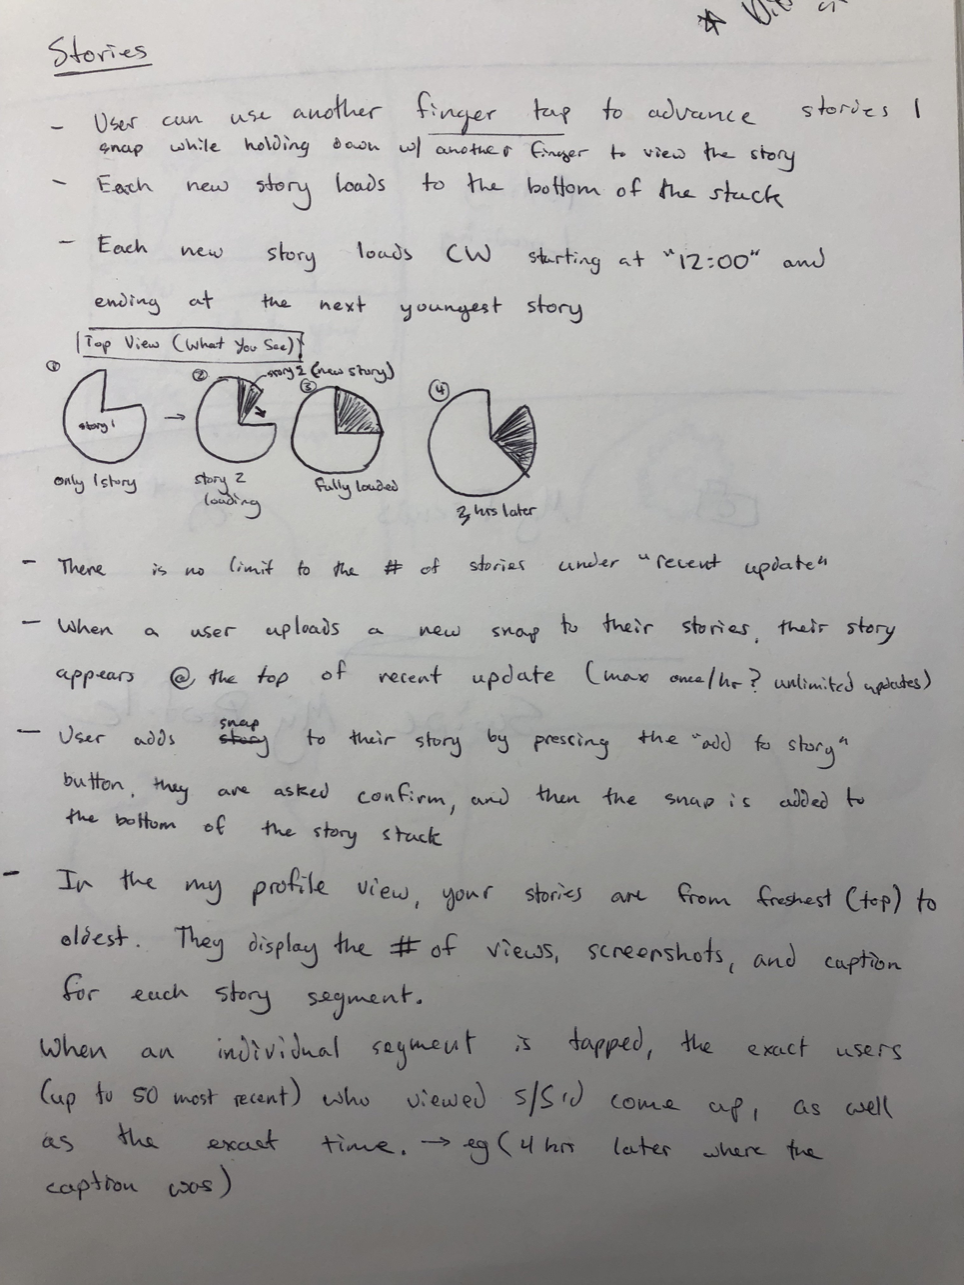 Stories
- User can use another finger tap to advance stories |
snap while holding down w/ another finger to view the story
- Each new story loads to the bottom of the stack
- Each new story loads CW starting at "12:00" and
ending at the next youngest story
Top View (What You See)
① ② story 2 (new story) ③ ④
story 1 →
only 1 story
story 2
loading
fully loaded
hrs later
- There is no limit to the # of stories under "recent update"
- When a user uploads a new snap to their stories, their story
appears @ the top of recent update (max once/hr? unlimited updates)
- User adds snap story to their story by pressing the "add to story"
button, they are asked confirm, and then the snap is added to
the bottom of the story stack
- In the my profile view, your stories are from freshest (top) to
oldest. They display the # of views, screenshots, and caption
for each story segment.
When an individual segment is tapped, the exact users
(up to 50 most recent) who viewed S/S'd come up, as well
as the exact time. → eg (4 hrs later where the
caption was)